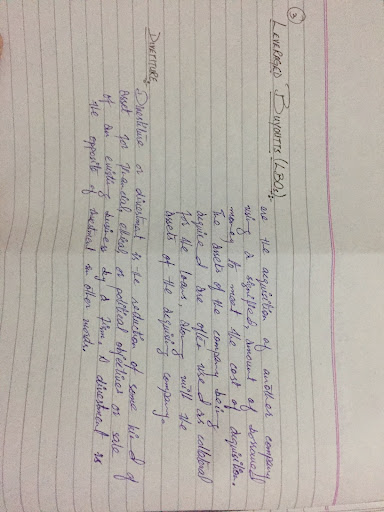 ③
LEVERAGED BUYOUTS (LBOs):-
are the acquisition of another company
using a significant amount of borrowed
money to meet the cost of acquisition.
The assets of the company being
acquired are often used as collateral
for the loans, along with the
assets of the acquiring company.
DIVESTITURE:
Divestiture or divestment is the reduction of some kind of
asset for financial, ethical or political objectives or sale
of an existing business by a firm. A divestment is
the opposite of investment in other words.